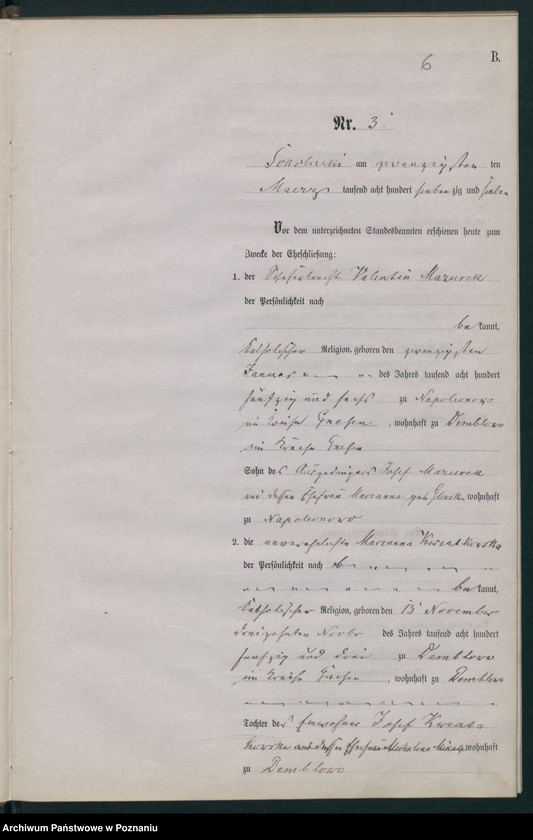 6
B.
Nr. 3.
am zwanzigsten ten
Maerz tausend acht hundert siebenzig und sieben
Vor dem unterzeichneten Standesbeamten erschienen heute zum
Zwecke der Eheschließung:
1. der Valentin Mazurek
der Persönlichkeit nach
bekannt,
katholischer Religion, geboren den zwanzigsten
Januar des Jahres tausend acht hundert
fünfzig und sechs zu Napoleonowo
im Kreise Gnesen, wohnhaft zu Demblowo
im Kreise Gnesen
Sohn des Ausgedingers Josef Mazurek
und dessen Ehefrau Marianna geb. wohnhaft
zu Napoleonowo
2. die unverehelichte Marianna Kwiatkowska
der Persönlichkeit nach
bekannt,
katholischer Religion, geboren den 13 November
dreizehnten Novbr des Jahres tausend acht hundert
fünfzig und drei zu Demblowo
im Kreise Gnesen, wohnhaft zu Demblowo
Tochter des Einwohner Josef Kwiat-
kowski und dessen Ehefrau wohnhaft
zu Demblowo
Archiwum Państwowe w Poznaniu